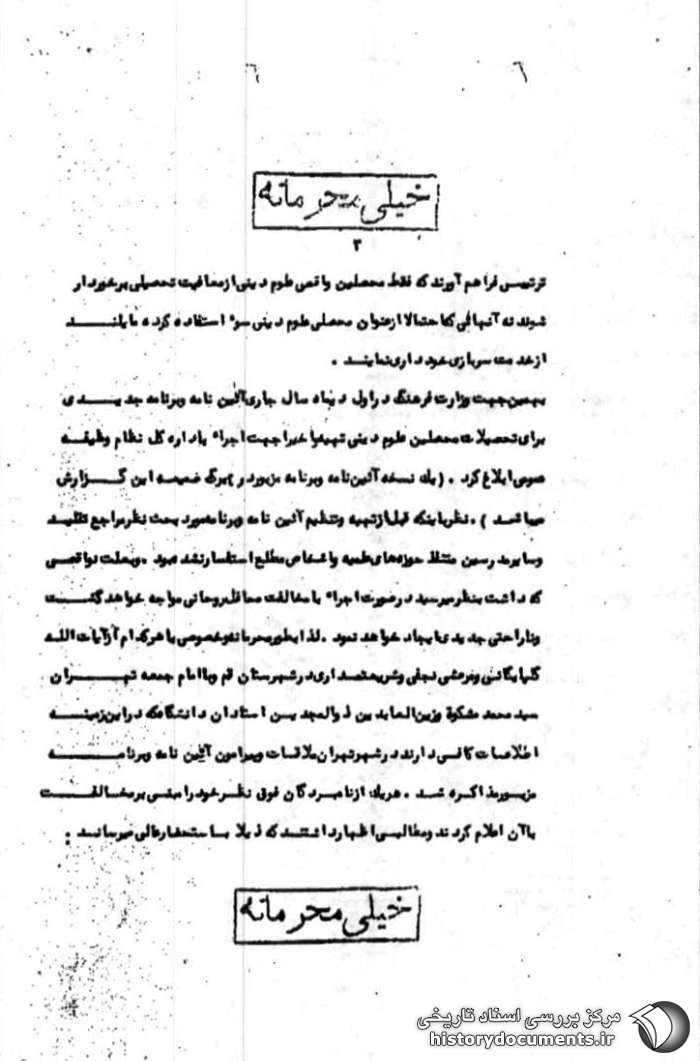 ٦ ٦
خیلی محرمانه
۳
ترتیبی فراهم آورند که فقط محصلین واقعی علوم دینی از معافیت تحصیلی برخوردار
شوند نه آنهائی که احتمالا از عنوان محصلی علوم دینی سوء استفاده کرده مایلند
از خدمت سربازی خود داری نمایند .
بهمین جهت وزارت فرهنگ در اول دیماه سال جاری آئین نامه وبرنامه جدیدی
برای تحصیلات محصلین علوم دینی تهیه واخیرا جهت اجراء باداره کل نظام وظیفه
عمومی ابلاغ کرد . (یك نسخه آئین نامه وبرنامه مزبور در برگ ضمیمه این گزارش
میباشد ) . نظر باینکه قبل از تهیه وتنظیم آئین نامه وبرنامه مورد بحث نظر مراجع تقلید
وسایر مدرسین حوزه های علمیه واشخاص مطلع استفسار نشده بود . وبعلت نواقصی
که داشت بنظر میرسید در صورت اجراء با مخالفت محافل روحانی مواجه خواهد گشت
وناراحتی جدیدی ایجاد خواهد نمود . لذا بطور محرمانه وخصوصی با هر کدام از آیات الله
گلپایگانی ومرعشی نجفی وشریعتمداری در شهرستان قم وبا امام جمعه تهران
سید محمد مشکوة وزین العابدین ذوالمجدین استادان دانشگاه که در این زمینه
اطلاعات کافی دارند در شهر تهران ملاقات وپیرامون آئین نامه وبرنامه
مزبور مذاکره شد . هریك از نامبردگان فوق نظر خود را مبنی بر مخالفت
با آن اعلام کردند ومطالبی اظهار داشتند که ذیلا باستحضار عالی میرساند :
خیلی محرمانه
مرکز بررسی اسناد تاریخی
historydocuments.ir